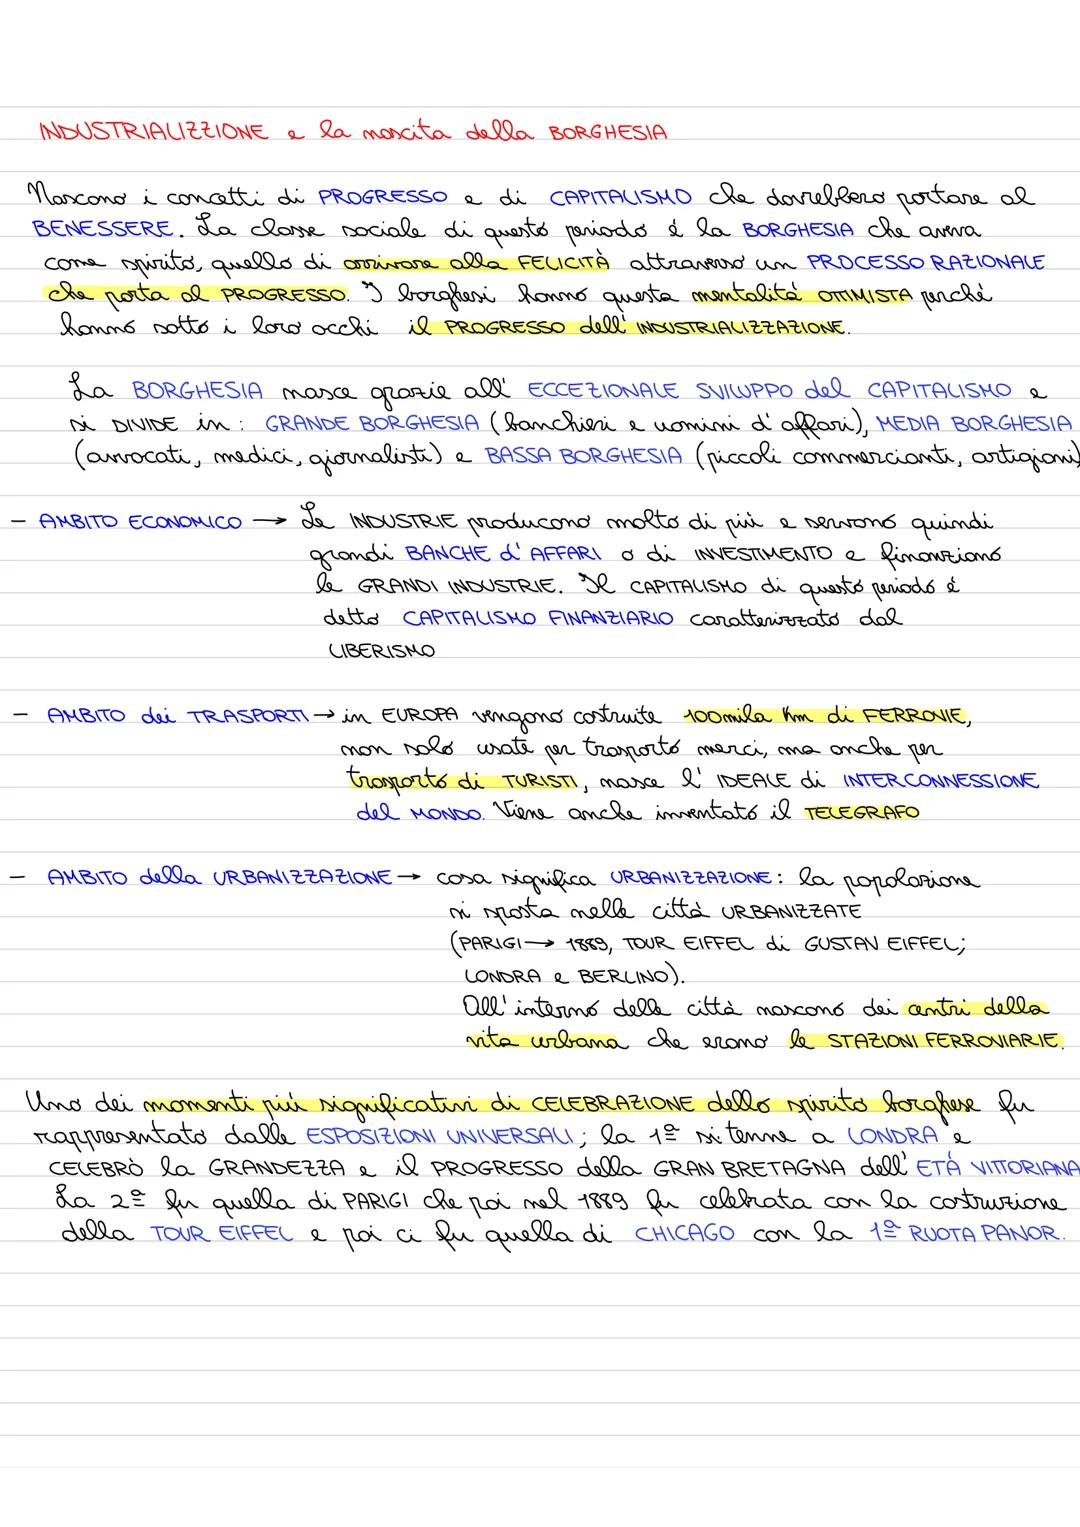 INDUSTRIALIZZIONE e la nascita della BORGHESIA
Nascono i concetti di PROGRESSO e di CAPITALISMO che dovrebbero portare al
BENESSERE. La classe sociale di questo periodo è la BORGHESIA che aveva
come spirito, quello di arrivare alla FELICITÀ attraverso un PROCESSO RAZIONALE
che porta al PROGRESSO. I borghesi hanno questa mentalità OTTIMISTA perchè
hanno sotto i loro occhi il PROGRESSO dell' INDUSTRIALIZZAZIONE.
La BORGHESIA nasce grazie all' ECCEZIONALE SVILUPPO del CAPITALISMO e
si DIVIDE in: GRANDE BORGHESIA (banchieri e uomini d'affari), MEDIA BORGHESIA
(avvocati, medici, giornalisti) e BASSA BORGHESIA (piccoli commercianti, artigiani)
- AMBITO ECONOMICO → Le INDUSTRIE producono molto di più e servono quindi
grandi BANCHE d'AFFARI o di INVESTIMENTO e finanziano
le GRANDI INDUSTRIE. Il CAPITALISMO di questo periodo è
detto CAPITALISMO FINANZIARIO caratterizzato dal
LIBERISMO
- AMBITO dei TRASPORTI → in EUROPA vengono costruite 100mila Km di FERROVIE,
non solo usate per trasporto merci, ma anche per
trasporto di TURISTI, nasce l' IDEALE di INTERCONNESSIONE
del MONDO. Viene anche inventato il TELEGRAFO
- AMBITO della URBANIZZAZIONE → cosa significa URBANIZZAZIONE: la popolazione
si sposta nelle città URBANIZZATE
(PARIGI → 1889, TOUR EIFFEL di GUSTAV EIFFEL;
LONDRA e BERLINO).
All'interno delle città nascono dei centri della
vita urbana che erano le STAZIONI FERROVIARIE.
Uno dei momenti più significativi di CELEBRAZIONE dello spirito borghese fu
rappresentato dalle ESPOSIZIONI UNIVERSALI; la 1ª si tenne a LONDRA e
CELEBRÒ la GRANDEZZA e il PROGRESSO della GRAN BRETAGNA dell' ETÀ VITTORIANA
La 2ª fu quella di PARIGI che poi nel 1889 fu celebrata con la costruzione
della TOUR EIFFEL e poi ci fu quella di CHICAGO con la 1ª RUOTA PANOR.